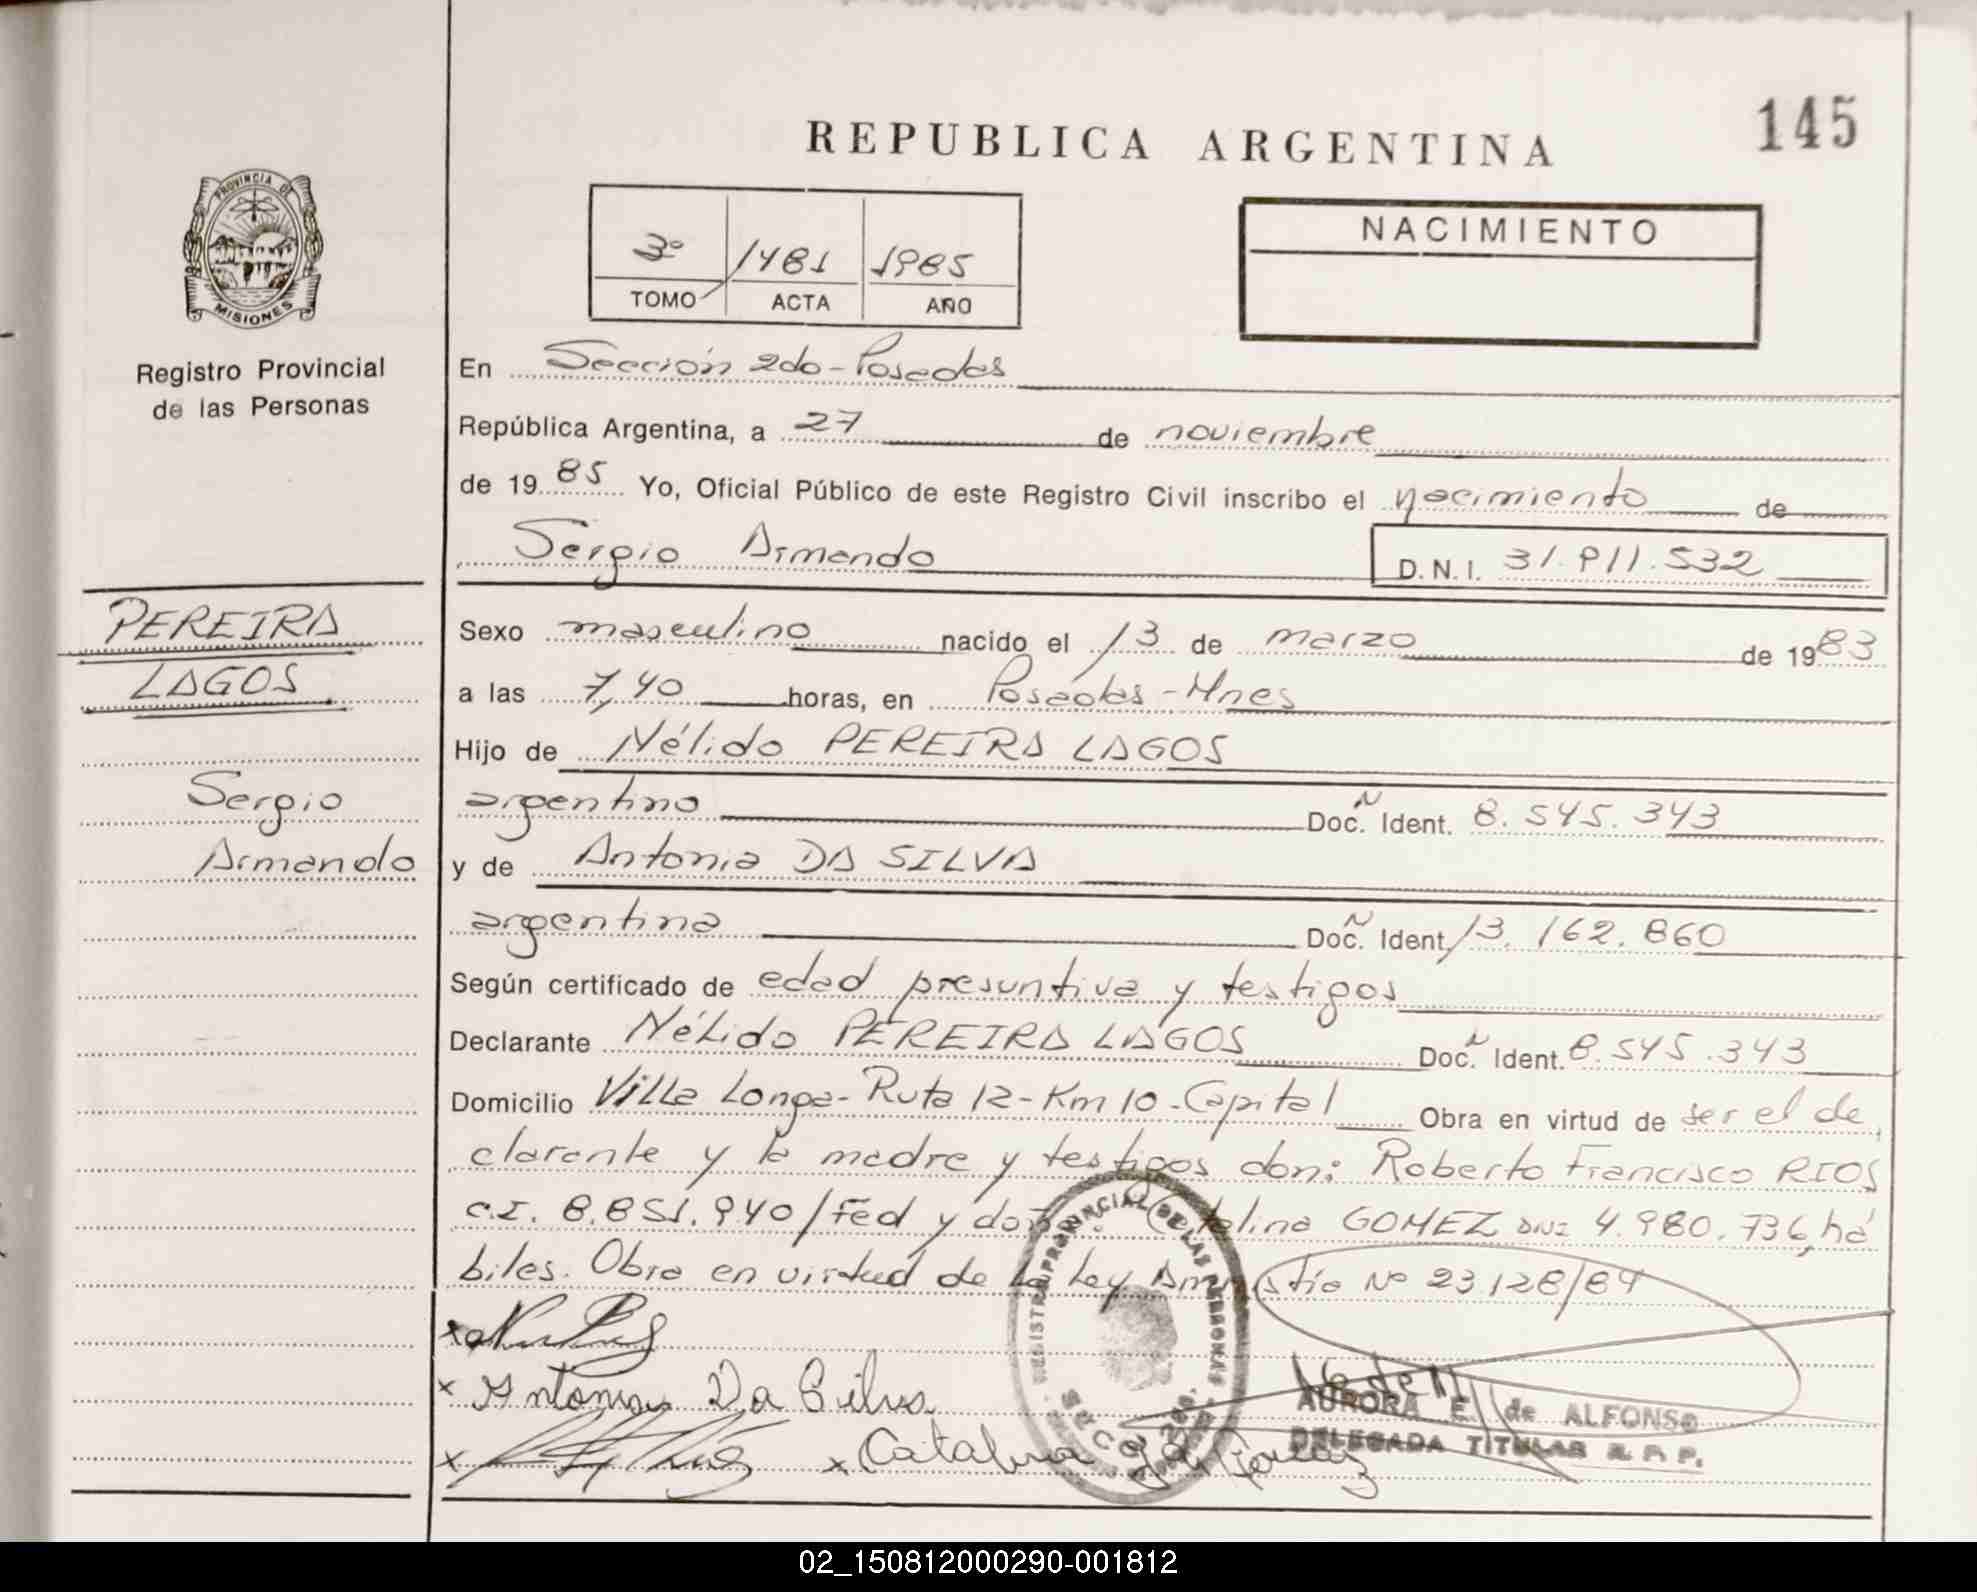 145
REPUBLICA ARGENTINA
PROVINCIA DE
MISIONES
Registro Provincial
de las Personas
3º 1481 1985
TOMO ACTA AÑO
NACIMIENTO
En Sección 2da - Posadas
República Argentina, a 27 de noviembre
de 1985 Yo, Oficial Público de este Registro Civil inscribo el nacimiento de
Sergio Armando D.N.I. 31.911.532
PEREIRA
LAGOS
Sergio
Armando
Sexo masculino nacido el 13 de marzo de 1983
a las 7,40 horas, en Posadas - Mnes
Hijo de Nélido PEREIRA LAGOS
argentino Doc. Ident. 8.545.343
y de Antonia DA SILVA
argentina Doc. Ident. 13.162.860
Según certificado de edad presuntiva y testigos
Declarante Nélido PEREIRA LAGOS Doc. Ident. 8.545.343
Domicilio Villa Longa - Ruta 12 - Km 10 - Capital Obra en virtud de ser el de
clarante y la madre y testigos don: Roberto Francisco RIOS
C.I. 8.851.940/Fed y doña: Catalina GOMEZ DNI 4.980.736, há
biles. Obra en virtud de la Ley Amnistía Nº 23.128/84
x
x Antonia Da Silva
x x Catalina
REGISTRO PROVINCIAL DE LAS PERSONAS
AURORA E. de ALFONSO
DELEGADA TITULAR R. P. P.
02_150812000290-001812